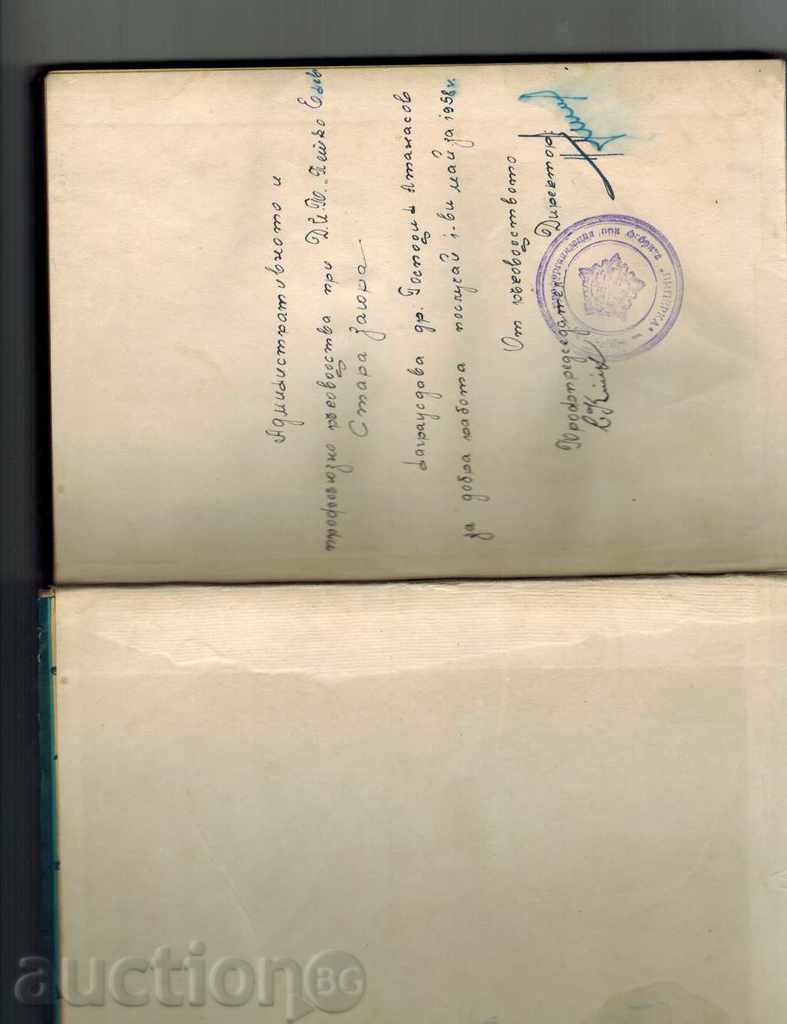 Административното и
профсъюзно ръководства при Д.И.П. Петко Енев
Стара Загора
награждава др. Господин Атанасов
за добра работа послучай 1-ви май за 1958 г.
От ръководството
Профпредседател: Директор:
auction BG